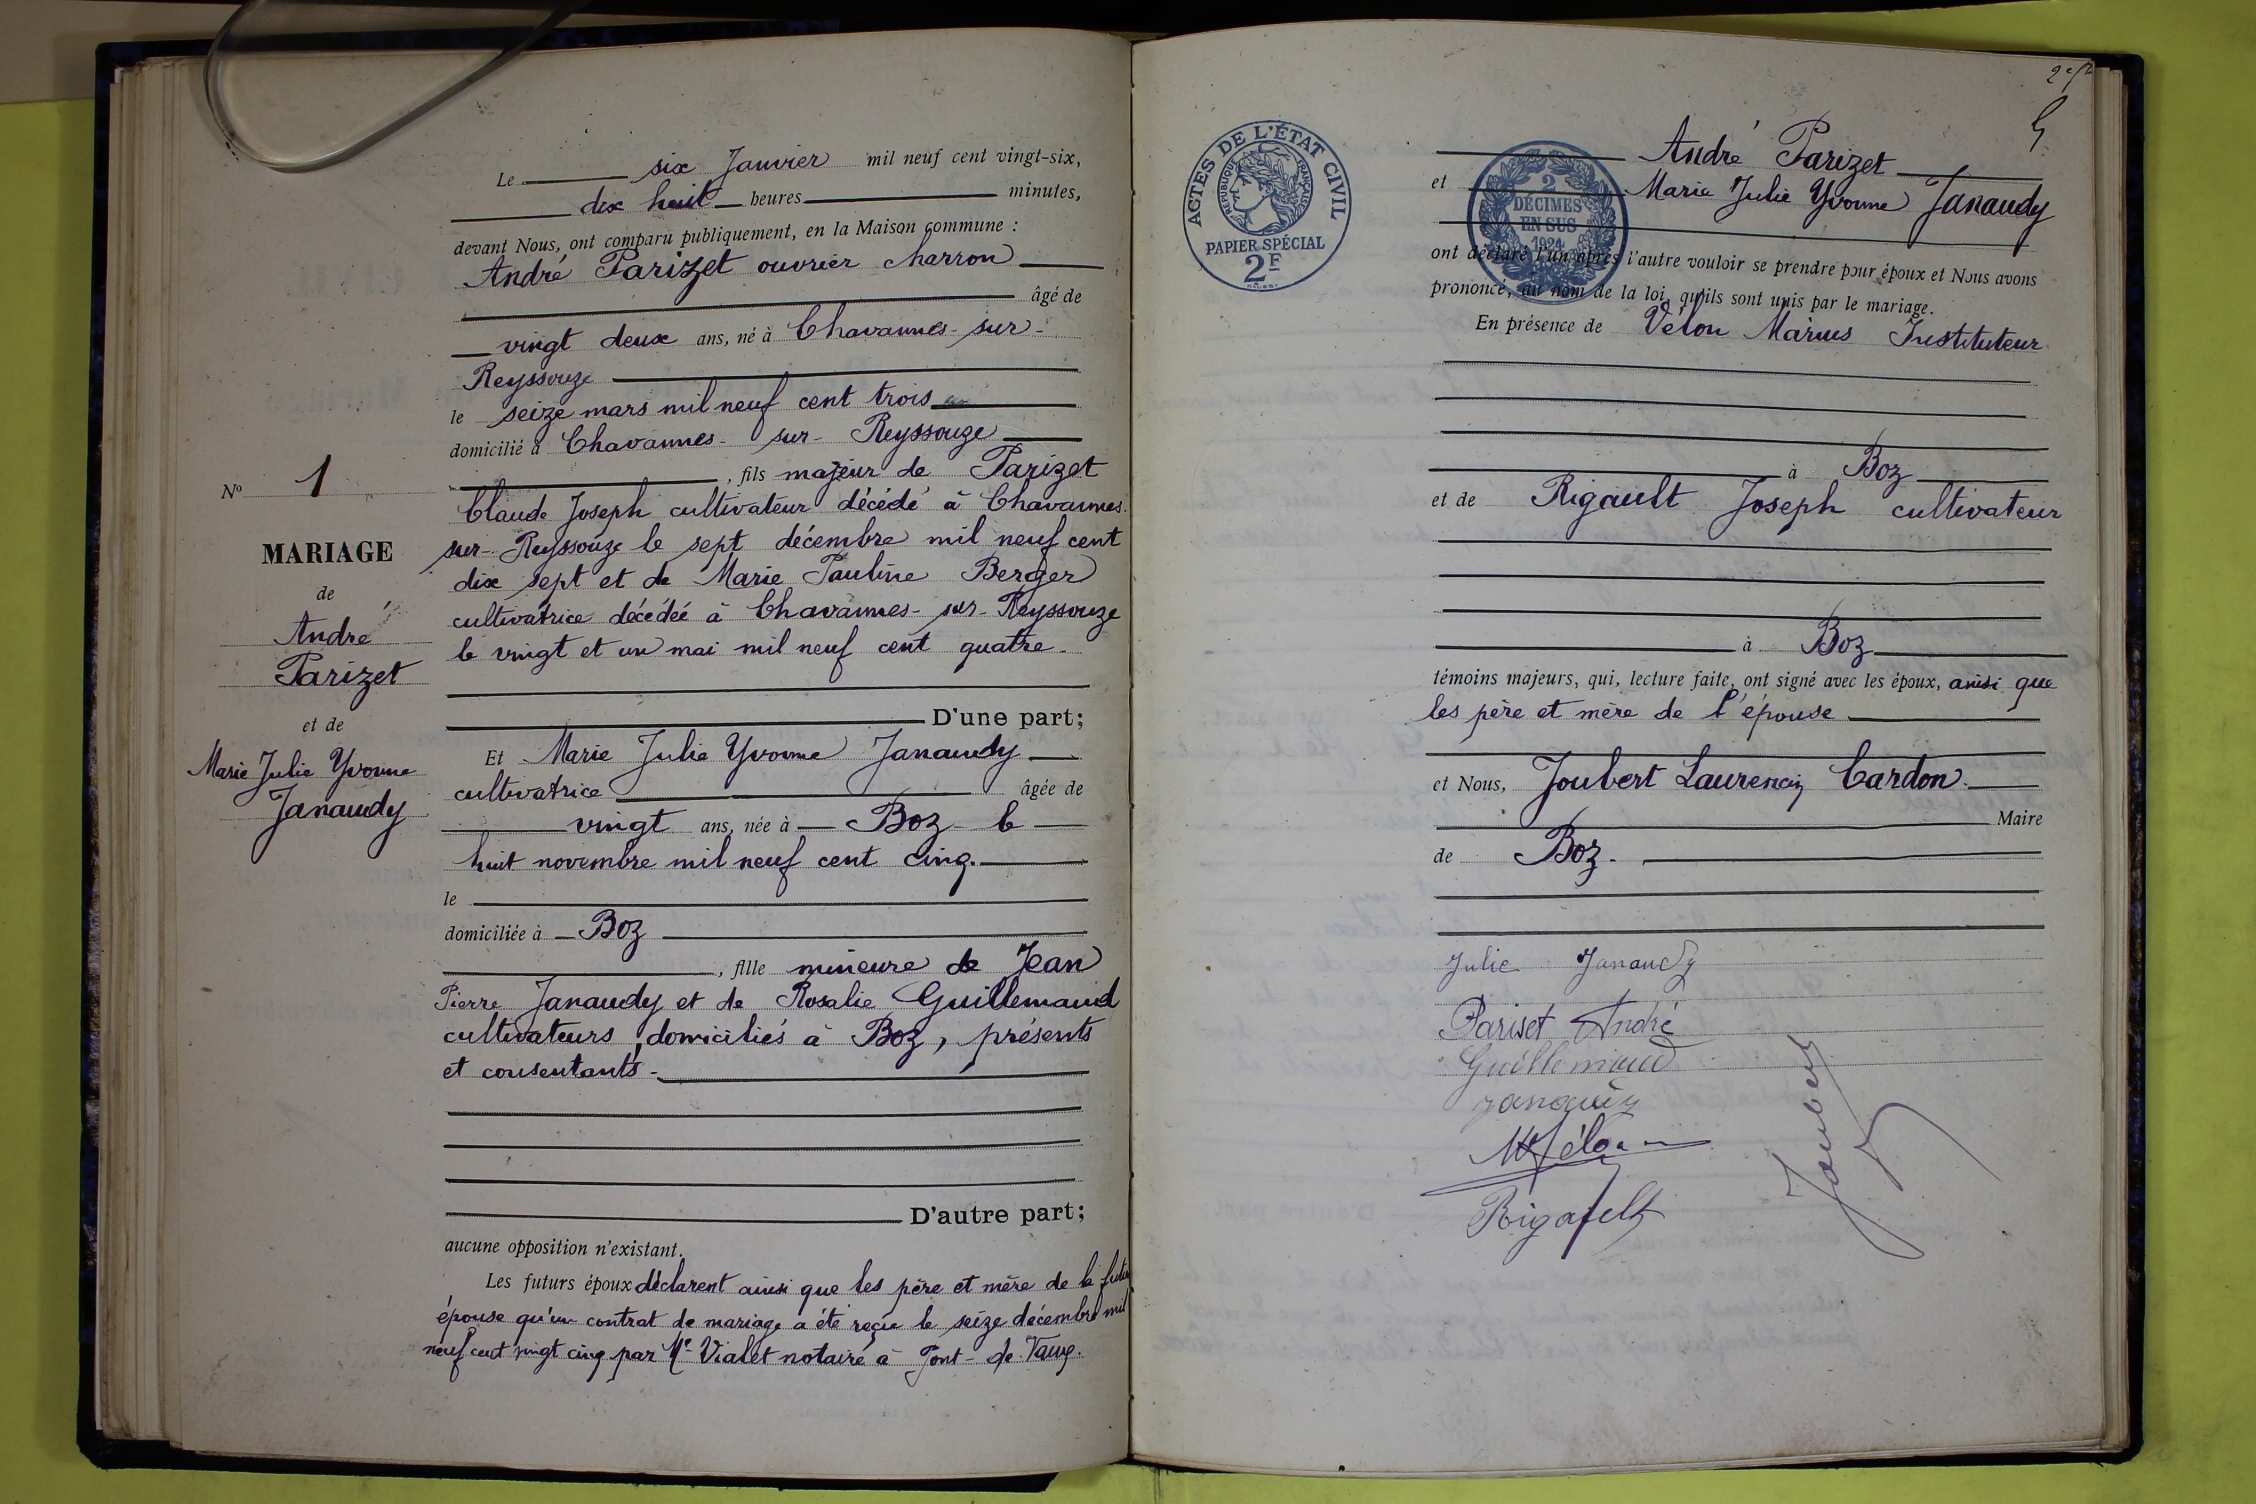 Le six Janvier mil neuf cent vingt-six,
dix huit heures minutes,
devant Nous, ont comparu publiquement, en la Maison commune :
André Parizet ouvrier charron
âgé de
vingt deux ans, né à Chavannes-sur-
Reyssouze
le seize mars mil neuf cent trois
domicilié à Chavannes-sur-Reyssouze
, fils majeur de Parizet
Claude Joseph cultivateur décédé à Chavannes-
sur-Reyssouze le sept décembre mil neuf cent
dix sept et de Marie Pauline Berger
cultivatrice décédée à Chavannes-sur-Reyssouze
le vingt et un mai mil neuf cent quatre.
D'une part;
Et Marie Julie Yvonne Janaudy
cultivatrice âgée de
vingt ans, née à Boz le
huit novembre mil neuf cent cinq.
le
domiciliée à Boz
, fille mineure de Jean
Pierre Janaudy et de Rosalie Guillemaud
cultivateurs domiciliés à Boz, présents
et consentants.
D'autre part;
aucune opposition n'existant.
Les futurs époux déclarent ainsi que les père et mère de la future
épouse qu'un contrat de mariage a été reçu le seize décembre mil
neuf cent vingt cinq par Me Vialet notaire à Pont-de-Vaux.
No 1
MARIAGE
de
André
Parizet
et de
Marie Julie Yvonne
Janaudy
ACTES DE L'ÉTAT CIVIL
RÉPUBLIQUE FRANÇAISE
PAPIER SPÉCIAL
2F
2
DÉCIMES
EN SUS
1924
André Parizet
et Marie Julie Yvonne Janaudy
ont déclaré l'un après l'autre vouloir se prendre pour époux et Nous avons
prononcé, au nom de la loi, qu'ils sont unis par le mariage.
En présence de Vélon Marius Instituteur
à Boz
et de Rigault Joseph cultivateur
à Boz
témoins majeurs, qui, lecture faite, ont signé avec les époux, ainsi que
les père et mère de l'épouse
et Nous, Joubert Laurencin Cardon.
Maire
de Boz.
Julie Janaudy
Pariset André
Guillemaud
Janaudy
M Vélon
Rigault
Joubert